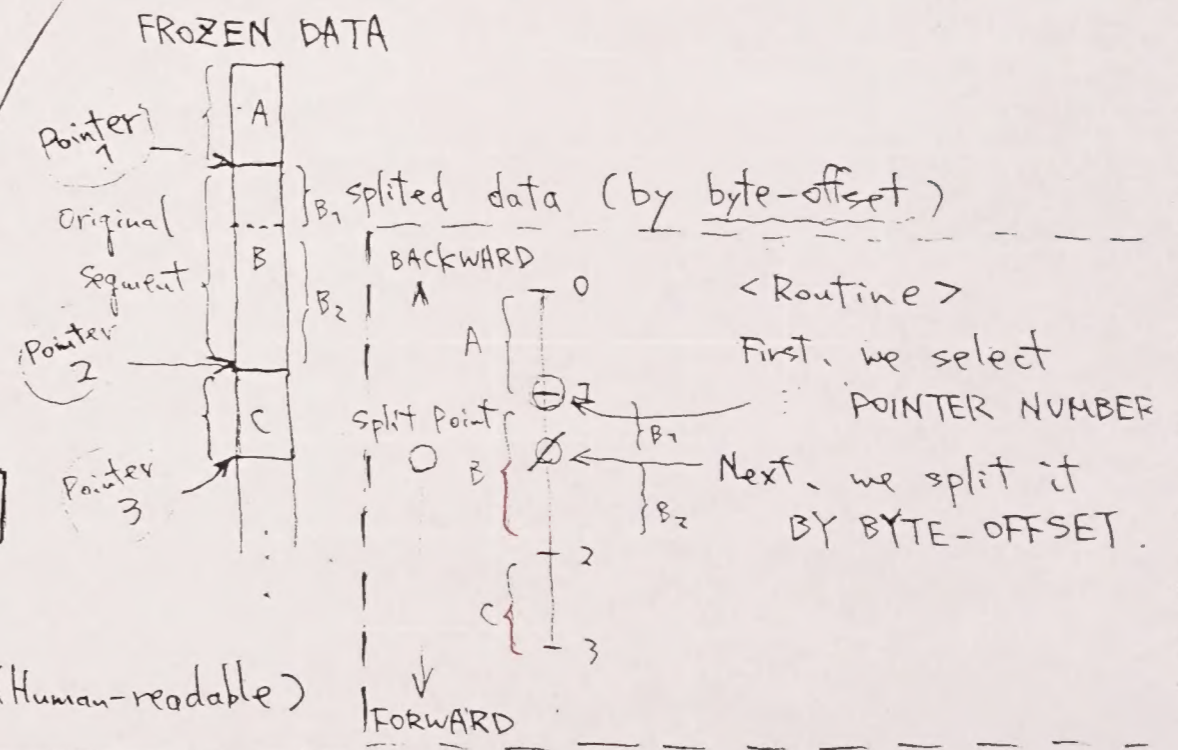 FROZEN DATA
A
Pointer
1
Original
Segment
B
B1
B2
Pointer
2
C
Pointer
3
splited data (by byte-offset)
BACKWARD
0
A
1
Split Point
B
B1
B2
2
C
3
FORWARD
<Routine>
First, we select
POINTER NUMBER
Next, we split it
BY BYTE-OFFSET.
(Human-readable)